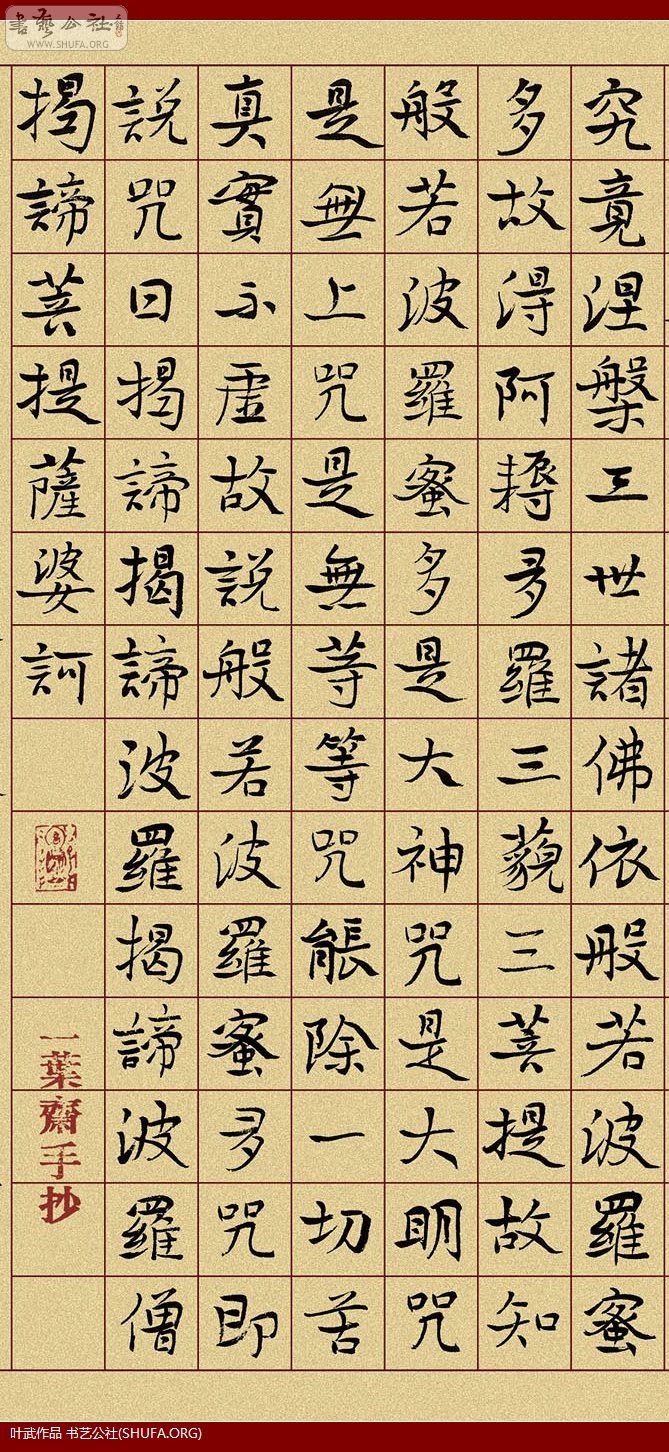 書藝公社
WWW.SHUFA.ORG
究竟涅槃三世諸佛依般若波羅蜜
多故得阿耨多羅三藐三菩提故知
般若波羅蜜多是大神咒是大明咒
是無上咒是無等等咒能除一切苦
真實不虛故說般若波羅蜜多咒即
說咒曰揭諦揭諦波羅揭諦波羅僧
揭諦菩提薩婆訶
一葉齋手抄
叶武作品 书艺公社(SHUFA.ORG)